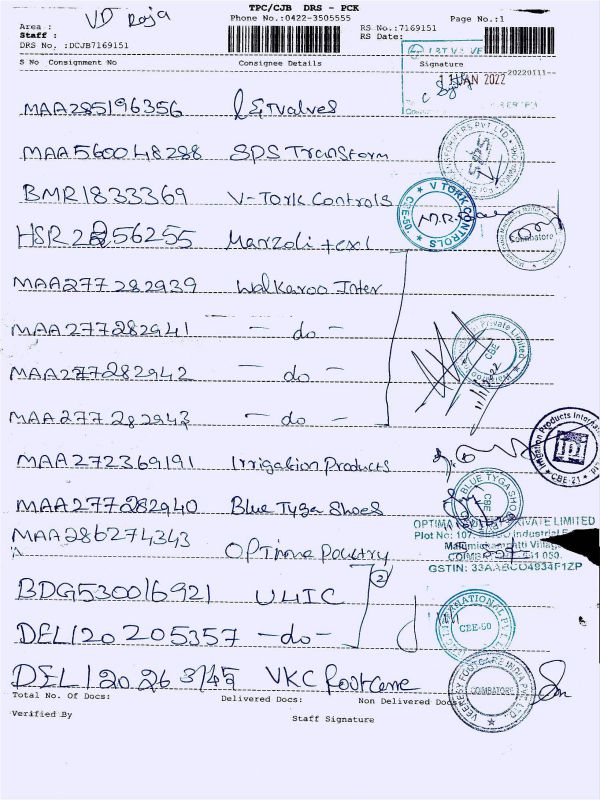 TPC/CJB DRS - PCK
VD Raja
Area :
Phone No.:0422-3505555
Page No.:1
Staff :
RS No.:7169151
DRS No. :DCJB7169151
RS Date:
S No Consignment No Consignee Details Signature
20220111
11 JAN 2022
MAA285196356 L&T Valves
MAA560048288 SPS Transform
BMR1833369 V-Tork Controls
V TORK CONTROLS
CBE-05
HSR 256255 Marzoli
Coimbatore
MAA277282939 Walkaroo Inter
MAA277282941 - do -
Private Limited
CBE
MAA277282942 - do -
MAA277282943 - do -
MAA272369191 Irrigation Products
Irrigation Products International
ipi
CBE-21
MAA277282940 Blue Tyga Shoes
BLUE TYGA SHOES
CBE
MAA286274343 Optima Poultry
OPTIMA PRIVATE LIMITED
Plot No: 107, Industrial
GSTIN: 33AABCO4934F1ZP
BDG530016921 UHIC
2
DEL120205357 - do -
CBE-50
DEL120263145 VKC Footcare
VEEKESY FOOTCARE INDIA PVT LTD
COIMBATORE
Total No. Of Docs: Delivered Docs: Non Delivered Docs
Verified By
Staff Signature